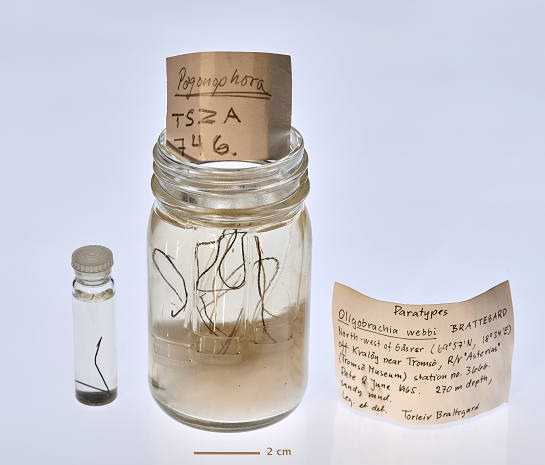 Pogonophora
TSZA
746.
Paratypes
Oligobrachia webbi BRATTEGARD
North-west of Gåsvær (69°57'N, 18°34'E)
off Kvaløy near Tromsø, R/V "Asterias"
(Tromsø Museum) station no. 3666.
Date 9 June 1965. 270 m depth,
sandy mud.
Leg. et det. Torleiv Brattegard
2 cm